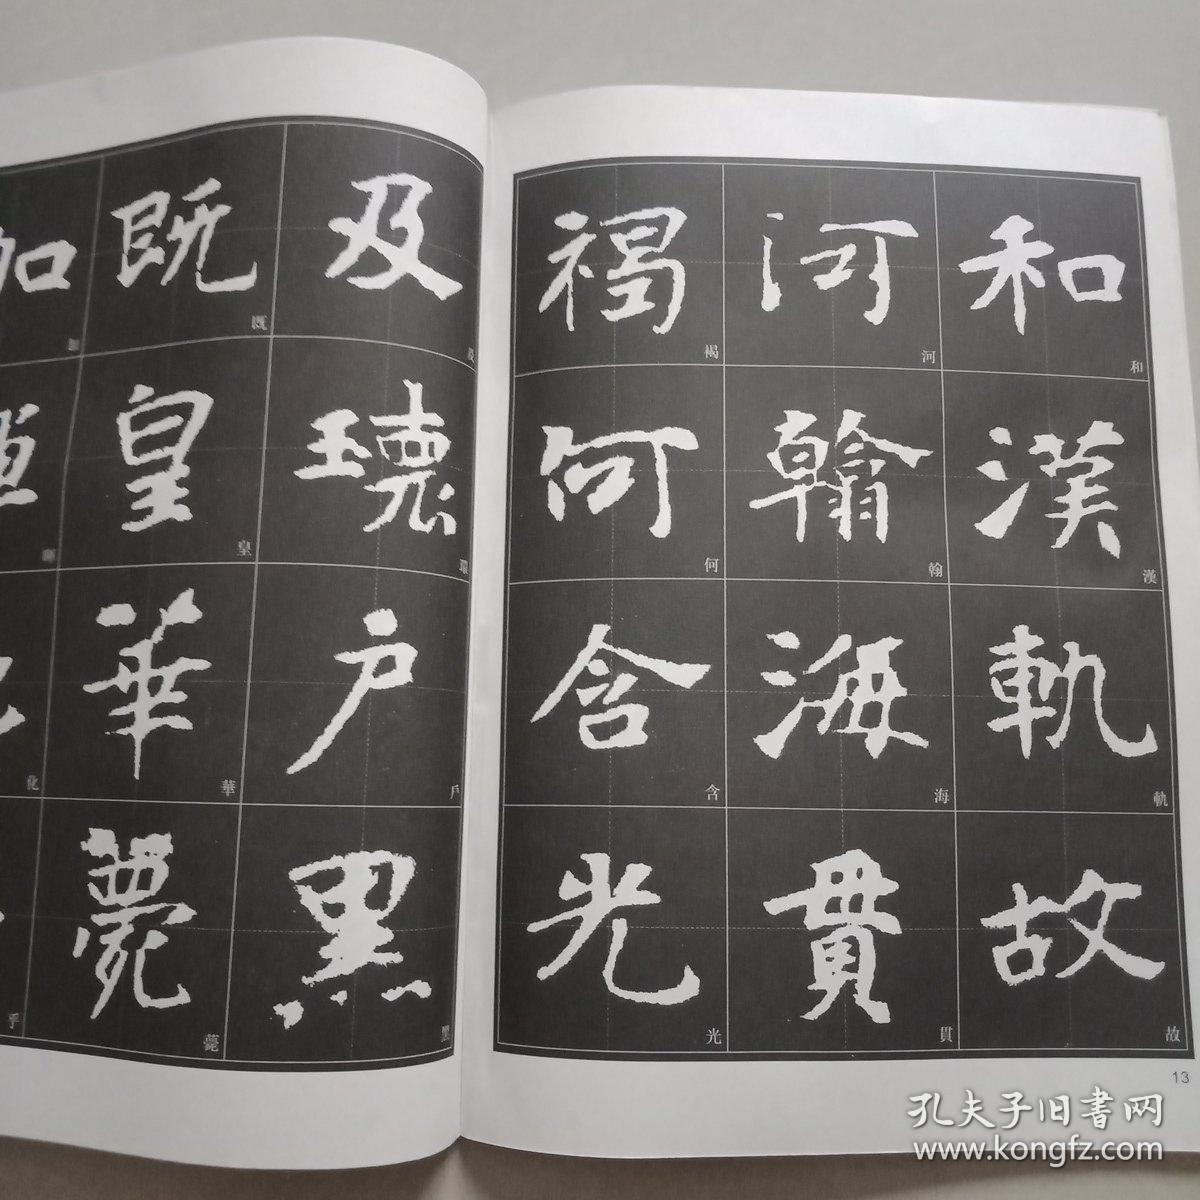 和 河 褐
漢 翰 何
軌 海 含
故 貫 光
和 河 褐
漢 翰 何
軌 海 含
故 貫 光
13
及 既 加
環 皇
戶 華 化
黑 薨 乎
及 既
環 皇
戶 華 化
黑 薨 乎
孔夫子旧書网
www.kongfz.com